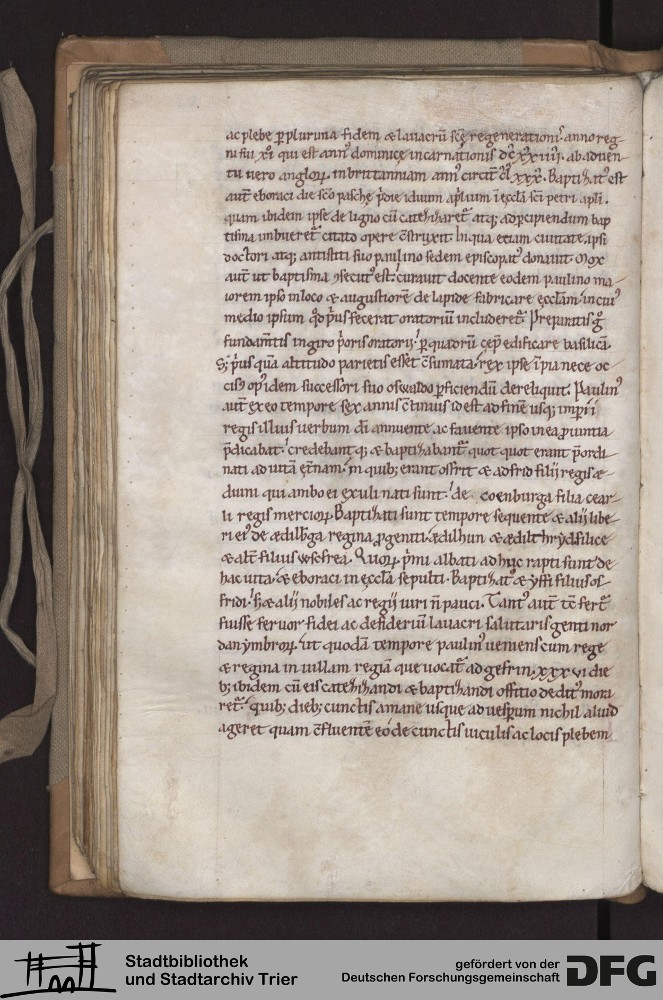 ac plebe ꝑplurima fidem & lauacrū sc̄ę regenerationiꝰ anno reg
ni sui xı̊. qui est annꝰ dominicę incarnationis dc̄ xxvıı. ab aduen
tu uero angloꝝ in brittanniam annꝰ circit̄ cl̄ xxx. Baptizatꝰ est
aut̄ eboraci die sc̄o paschę p̄die iduum apl̄ium in eccl̄a sc̄i petri apl̄i.
quam ibidem ipse de ligno cū catehizaret᷑ atq; ad ꝑcipiendum bap
tisma imbueret᷑ citato opere c̄struxit. In qua etiam ciuitate. ipsi
doctori atq; antistiti suo paulino sedem episcopatꝰ donauit. Mox
aut̄ ut baptisma ꝯsecutꝰ est. curauit docente eodem paulino ma
iorem ipso in loco & augustiorē de lapide fabricare ęccl̄am. in cuiꝰ
medio ipsum qd̄ p̄us fecerat oratoriū includeret᷑. Preparatis g̊
fundam̄tis in giro p̄oris oratorij. ꝑ quadrū cep̄ edificare basilicā.
S; p̄us quā altitudo parietis esset c̄sumata. rex ipse īpia nece oc
cisꝰ opꝰ idem successori suo oswaldo ꝑficiendū dereliquit. Paulinꝰ
aut̄ ex eo tempore sex annis c̄tinuis id est ad finē usq; imp̄ii
regis illius uerbum dī annuente ac fauente ipso in ea ꝓuintia
p̄dicabat. credebantq; & baptizabant᷑ quot quot erant p̄ordi
nati ad uitā ęt̄nam. in quib; erant osfrit & adfrid filij regis æ
duini qui ambo ei exuli nati sunt. de coenburga filia cear
li regis mercioꝝ. Baptizati sunt tempore sequente & alij libe
ri eiꝰ de ædilb̄ga regina ꝓgeniti. ædilhun & ædilthryd filiæ
& alt̄ filius wsfrea. Quoꝝ p̄mi albati adhuc rapti sunt de
hac uita. & eboraci in ęccl̄a sepulti. Baptizatꝰ & yffi filius os
fridi. s; & alij nobiles ac regij uiri n̄ pauci. Tantꝰ aut̄ tc̄ fert᷑
fuisse feruor fidei ac desideriū lauacri salutaris genti nor
danymbroꝝ. ut quodā tempore paulinꝰ ueniens cum rege
& regina in uillam regiā que uocat᷑ ad gefrin. xxxvi die
b; ibidem cū eis catehizandi & baptizandi offitio deditꝰ mora
ret᷑. quib; dieb; cunctis a mane usque ad uesꝑum nichil aliud
ageret quam c̄fluentē eo de cunctis uiculis ac locis plebem
Stadtbibliothek
und Stadtarchiv Trier
gefördert von der
Deutschen Forschungsgemeinschaft
DFG